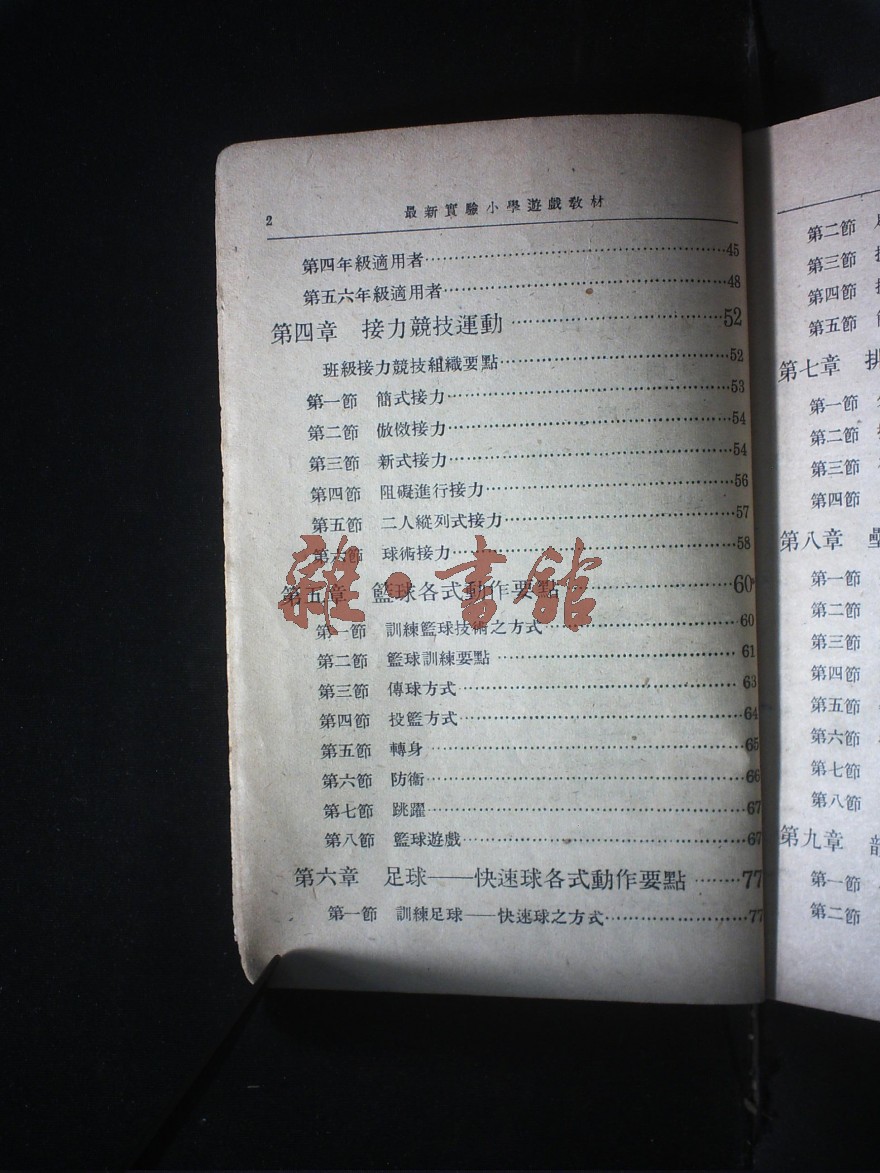 2 最新實驗小學遊戲教材
第四年級適用者…………45
第五六年級適用者…………48
第四章 接力競技運動…………52
班級接力競技組織要點…………52
第一節 簡式接力…………53
第二節 倣傚接力…………54
第三節 新式接力…………54
第四節 阻礙進行接力…………56
第五節 二人縱列式接力…………57
第六節 球術接力…………58
第五章 籃球各式動作要點…………60
第一節 訓練籃球技術之方式…………60
第二節 籃球訓練要點…………61
第三節 傳球方式…………63
第四節 投籃方式…………64
第五節 轉身…………65
第六節 防衞…………66
第七節 跳躍…………67
第八節 籃球遊戲…………67
第六章 足球——快速球各式動作要點………77
第一節 訓練足球——快速球之方式…………77
雜·書館
第二節
第三節
第四節
第五節
第七章 排
第一節
第二節
第三節
第四節
第八章 壘
第一節
第二節
第三節
第四節
第五節
第六節
第七節
第八節
第九章
第一節
第二節